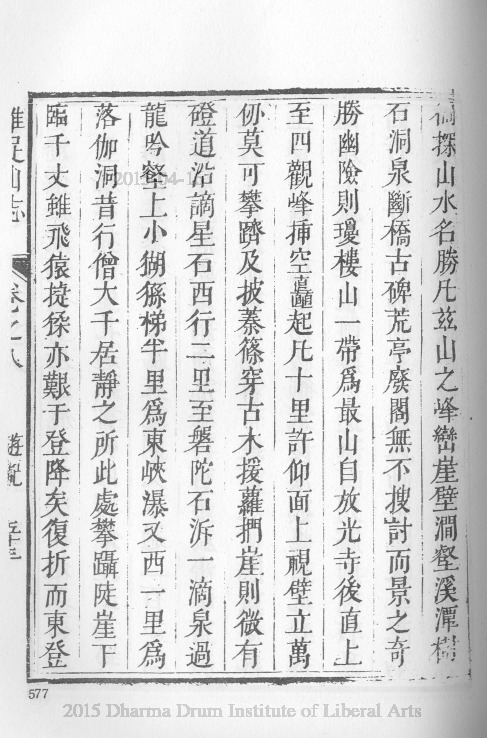 探山水名勝凡茲山之峰巒崖壁澗壑溪潭
石洞泉斷橋古碑荒亭廢閣無不搜討而景之奇
勝幽險則瓊樓山一帶爲最山自放光寺後直上
至四觀峰揷空矗起凡十里許仰面上視壁立萬
仞莫可攀躋及披蓁篠穿古木援蘿捫崖則微有
磴道沿謫星石西行二里至磐陀石泝一滴泉過
龍吟壑上小猢猻梯半里爲東峽瀑又西一里爲
落伽洞昔行僧大千居靜之所此處攀躡陡崖下
臨千丈雖飛猿捷猱亦艱于登降矣復折而東登
雞足山志 卷之八 遊覽 五十三
577
2015 Dharma Drum Institute of Liberal Arts